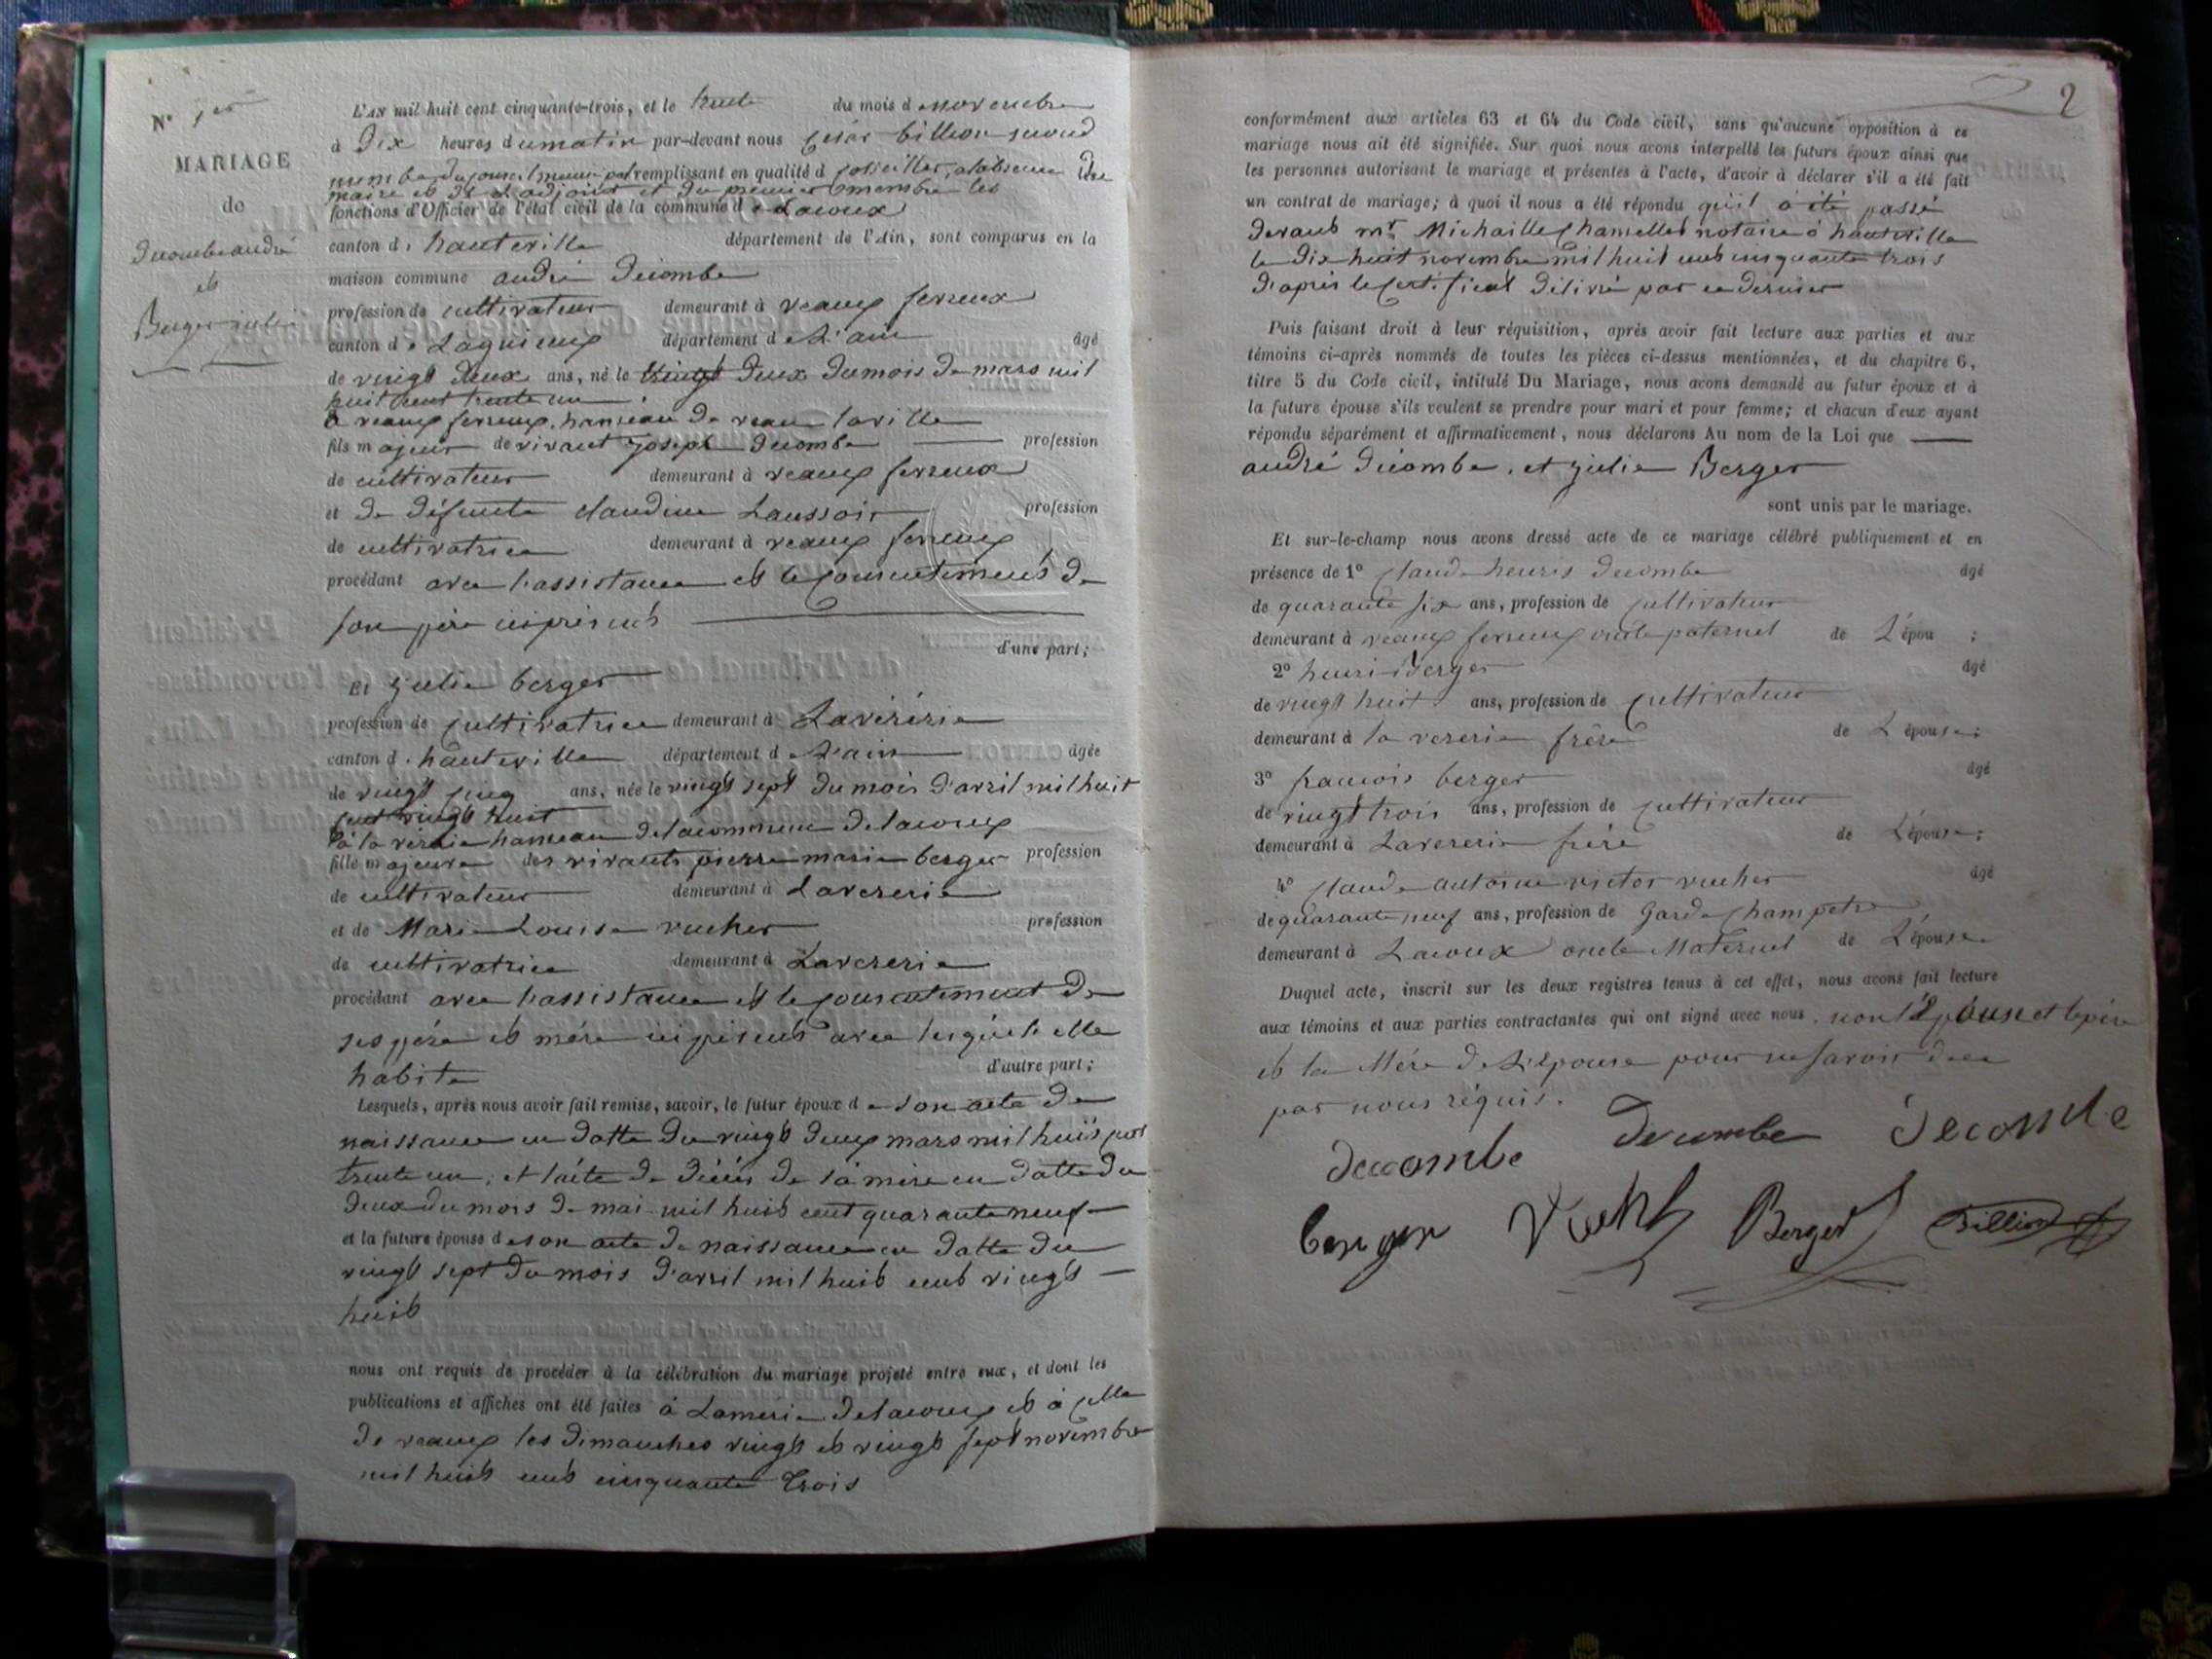 N° 1er
MARIAGE
de
Decombe andré
et
Berger julie
L'AN mil huit cent cinquante-trois, et le trente du mois d novembre
à Dix heures du matin par-devant nous César billion second
membre du conseil municipal remplissant en qualité d conseiller, alabsence du
maire et de L'adjoint et du premier membre les
fonctions d'Officier de l'état civil de la commune de Lacoux
canton d. hauteville département de l'Ain, sont comparus en la
maison commune andré Décombe
profession de cultivateur demeurant à veaux fevroux
canton de Lagnieux département de L'ain âgé
de vingt deux ans, né le vingt deux du mois de mars mil
huit cent trente un
à veaux fevroux, hameau de veau laville
fils majeur de vivant joseph decombe profession
de cultivateur demeurant à veaux fevroux
et de défunte claudine Laussoir profession
de cultivatrice demeurant à veaux fevroux
procédant avec l'assistance et le consentement de
son père ici présent
d'une part;
Et julie berger
profession de cultivatrice demeurant à Lavéreria
canton d. hauteville département de L'ain âgée
de vingt cinq ans, née le vingt sept du mois d'avril mil huit
cent vingt huit
à la vérerie hameau de lacommune de lacoux
fille majeure des vivants pierre marie berger profession
de cultivateur demeurant à Lavererie
et de Marie Louise vucher profession
de cultivatrice demeurant à Lavererie
procédant avec l'assistance et le consentement de
ses père et mère ici présents avec lesquels elle
habite d'autre part;
Lesquels, après nous avoir fait remise, savoir, le futur époux de son acte de
naissance en datte du vingt deux mars mil huit cent
trente un, et l'acte de décès de sa mère en datte du
deux du mois de mai mil huit cent quarante neuf
et la future épouse de son acte de naissance en datte du
vingt sept du mois d'avril mil huit cent vingt
huit
nous ont requis de procéder à la célébration du mariage projeté entre eux, et dont les
publications et affiches ont été faites à Lamerie de lacoux et à celle
de veaux les dimanches vingt et vingt sept novembre
mil huit cent cinquante trois
2
conformément aux articles 63 et 64 du Code civil, sans qu'aucune opposition à ce
mariage nous ait été signifiée. Sur quoi nous avons interpellé les futurs époux ainsi que
les personnes autorisant le mariage et présentes à l'acte, d'avoir à déclarer s'il a été fait
un contrat de mariage; à quoi il nous a été répondu qu'il a été passé
devant mr. Michaille notaire à hauteville
le dix huit novembre mil huit cent cinquante trois
d'après le certificat délivré par ce dernier
Puis faisant droit à leur réquisition, après avoir fait lecture aux parties et aux
témoins ci-après nommés de toutes les pièces ci-dessus mentionnées, et du chapitre 6,
titre 5 du Code civil, intitulé Du Mariage, nous avons demandé au futur époux et à
la future épouse s'ils veulent se prendre pour mari et pour femme; et chacun d'eux ayant
répondu séparément et affirmativement, nous déclarons Au nom de la Loi que
andré Décombe, et julie Berger
sont unis par le mariage.
Et sur-le-champ nous avons dressé acte de ce mariage célébré publiquement et en
présence de 1° claude henris decombe âgé
de quarante six ans, profession de cultivateur
demeurant à veaux fevroux oncle paternel de L'épou ;
2° henri Berger âgé
de vingt huit ans, profession de cultivateur
demeurant à la vererie frère de L'épouse;
3° francois berger âgé
de vingt trois ans, profession de cultivateur
demeurant à Lavererie frère de L'épouse;
4° claude antoine victor vucher âgé
de quarante neuf ans, profession de Garde champetre
demeurant à Lacoux oncle Maternel de L'épouse
Duquel acte, inscrit sur les deux registres tenus à cet effet, nous avons fait lecture
aux témoins et aux parties contractantes qui ont signé avec nous. non l'épouse et le père
et la Mère de L'épouse pour ne savoir de ce
par nous réquis.
decombe decombe decombe
berger Vucher Berger Billion